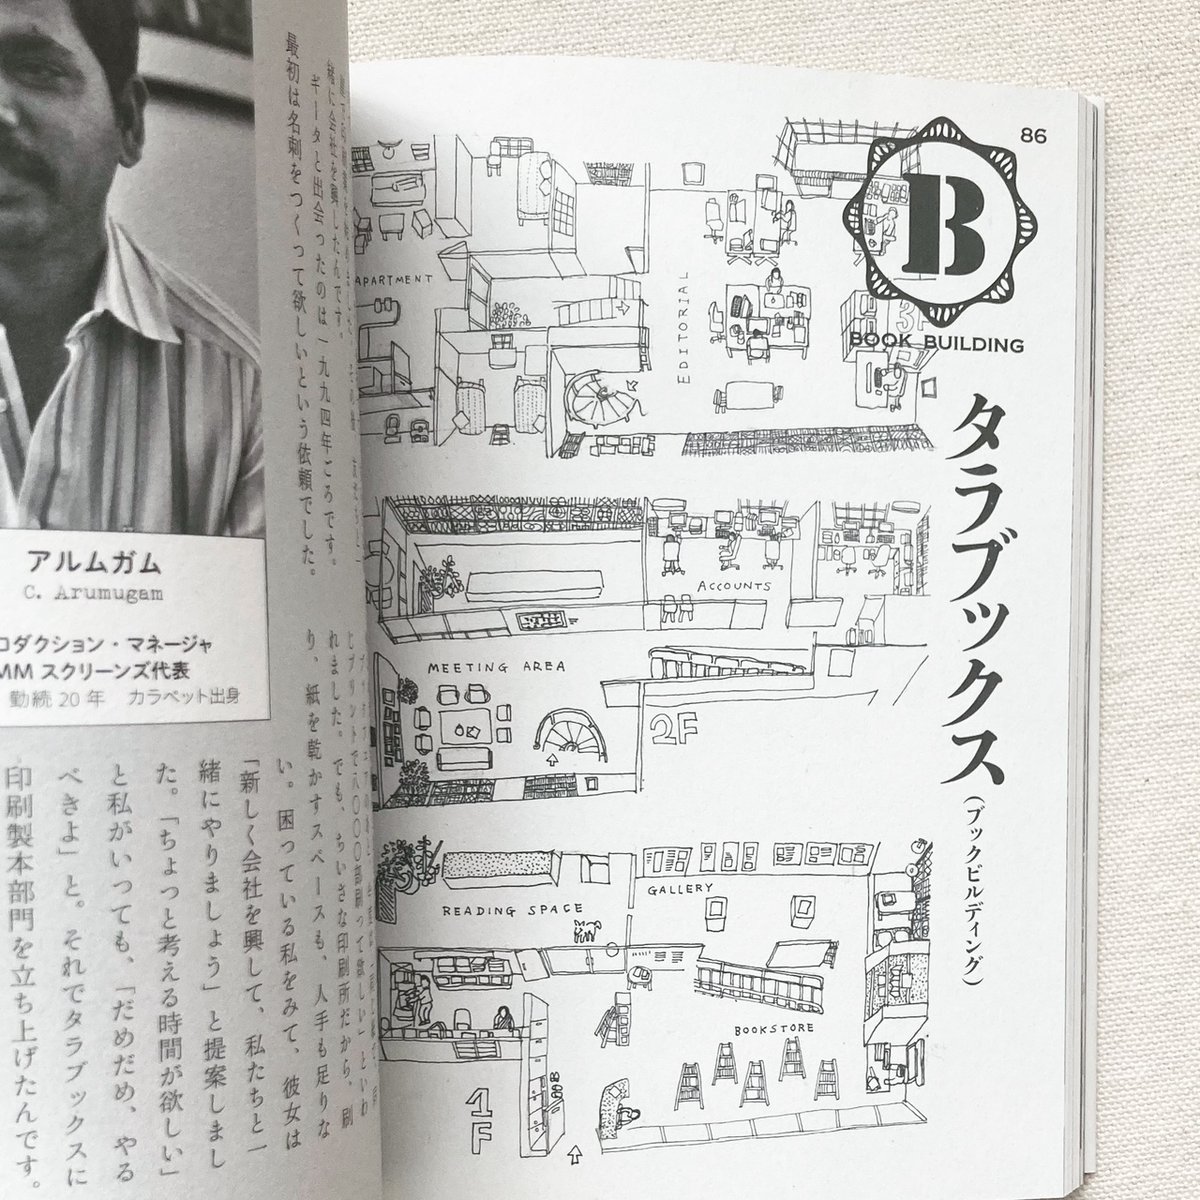 86
B
BOOK BUILDING
タラブックス
(ブックビルディング)
3F
APARTMENT
EDITORIAL
ACCOUNTS
MEETING AREA
2F
READING SPACE
GALLERY
BOOKSTORE
1F
緒に会社を興したんです。
ギータと出会ったのは一九九四年ごろです。
最初は名刺をつくって欲しいという依頼でした。
アルムガム
C. Arumugam
ロダクション・マネージャ
MMスクリーンズ代表
勤続20年 カラペット出身
れました。でも、ちいさな印刷所だから、刷
り、紙を乾かすスペースも、人手も足りな
い。困っている私をみて、彼女は
「新しく会社を興して、私たちと一
緒にやりましょう」と提案しまし
た。「ちょっと考える時間が欲しい」
と私がいっても、「だめだめ、やる
べきよ」と。それでタラブックスに
印刷製本部門を立ち上げたんです。